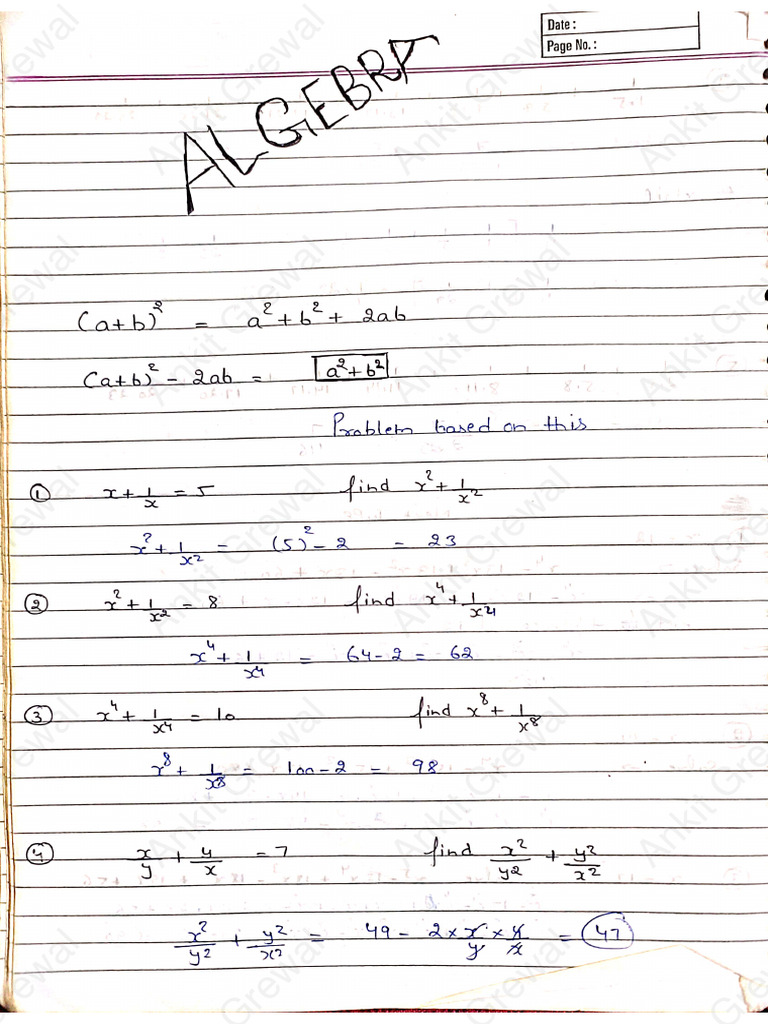 Date :
Page No. :
ALGEBRA
(a+b)² = a² + b² + 2ab
(a+b)² - 2ab = a² + b²
Problem based on this
① x + 1/x = 5 find x² + 1/x²
x² + 1/x² = (5)² - 2 = 23
② x² + 1/x² = 8 find x⁴ + 1/x⁴
x⁴ + 1/x⁴ = 64 - 2 = 62
③ x⁴ + 1/x⁴ = 10 find x⁸ + 1/x⁸
x⁸ + 1/x⁸ = 100 - 2 = 98
④ x/y + y/x = 7 find x²/y² + y²/x²
x²/y² + y²/x² = 49 - 2 × x/y × y/x = 47
Ankit Grewal